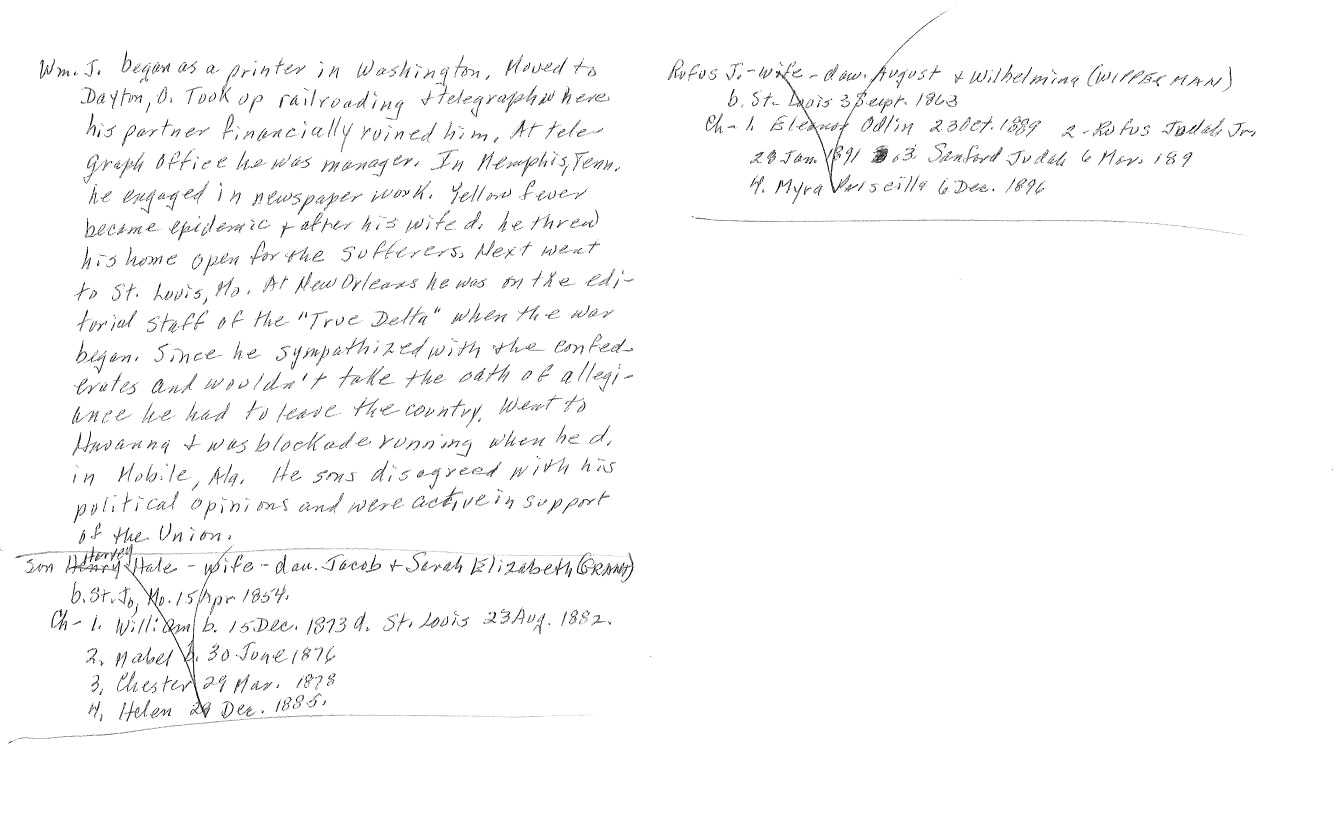 Wm. J. began as a printer in Washington. Moved to
Dayton, O. Took up railroading & telegraph where
his partner financially ruined him. At tele-
graph office he was manager. In Memphis, Tenn.
he engaged in newspaper work. Yellow fever
became epidemic & after his wife d. he threw
his home open for the sufferers. Next went
to St. Louis, Mo. At New Orleans he was on the edi-
torial staff of the "True Delta" when the war
began. Since he sympathized with the confed-
erates and wouldn't take the oath of allegi-
ance he had to leave the country. Went to
Havanna & was blockade running when he d.
in Mobile, Ala. He sons disagreed with his
political opinions and were active in support
of the Union.
Harvey
Son Henry Hale - wife - dau. Jacob & Sarah Elizabeth (GRANT)
b. St. Jo, Mo. 15 Apr 1854.
Ch- 1. William b. 15 Dec. 1873 d. St. Louis 23 Aug. 1882.
2. Mabel b. 30 June 1876
3. Chester 29 Mar. 1878
4. Helen Dec. 1885.
Rufus J. - wife - dau. August & Wilhelmina (WIPPERMAN)
b. St. Louis 3 Sept. 1863
Ch- 1. Eleanor Odlin 23 Oct. 1889 2 - Rufus Judah Jr.
28 Jan 1891 3. Sanford Judah 6 Mar. 189
4. Myra Priscilla 6 Dec. 1896